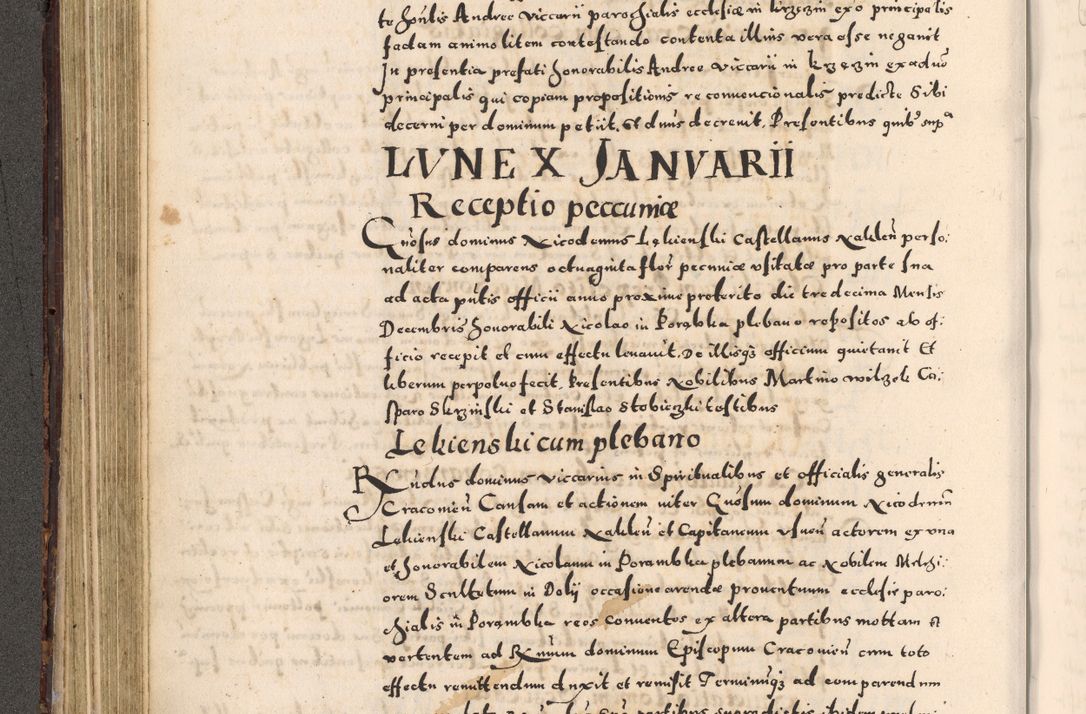 te honlis Andree viccarii parochialis ecclesiæ in krzęzin ex o principalis
fadam animo litem contestando contenta illius vera esse negauit
In presentia prefati honorabilis Andree viccarii in krzęzin ex aduo
principalis qui copiam propositionis reconuencionalis predicte Sibi
decerni per dominum petiit. Et dnus decreuit. Presentibus quibus supra
LVNE X JANVARII
Receptio peccuniæ
Gnosus dominus Nicodemus Lekienski Castellanus Naklen perso:
naliter comparens octuaginta flor pecuniæ vsitatæ pro parte sua
ad acta pntis officii anno proxime preterito die tredecima Mensis
Decembris honorabili Nicolao in Porąbka plebano repositos ab of:
ficio recepit et cum effectu leuauit. De illisqz officium quietauit Et
liberum perpetuo fecit. Presentibus Nobilibus Martino wilzek Ca:
sparo Skrzinski et Stanislao Stobieczki testibus
Lekienski cum plebano
Rndus dominus viccarius in Spiritualibus et officialis generalis
Cracouien Causam et actionem inter Gnosum dominum Nicodemum
Lekienski Castellanum Naklen et Capitaneum vsuen actorem ex vna
et honorabilem Nicolaum in Porambka plebanum ac Nobilem Melchi:
orem Scultetum in Doly occasione arendæ prouentuum ecclesie paro:
chialis in Porambka reos conuentos ex altera partibus mottam et
vertentem ad Rnum dominum Episcopum Cracouien cum toto
effectu remittendum duxit et remisit Terminumqz ad comparendum
partibus supradictis ibidem